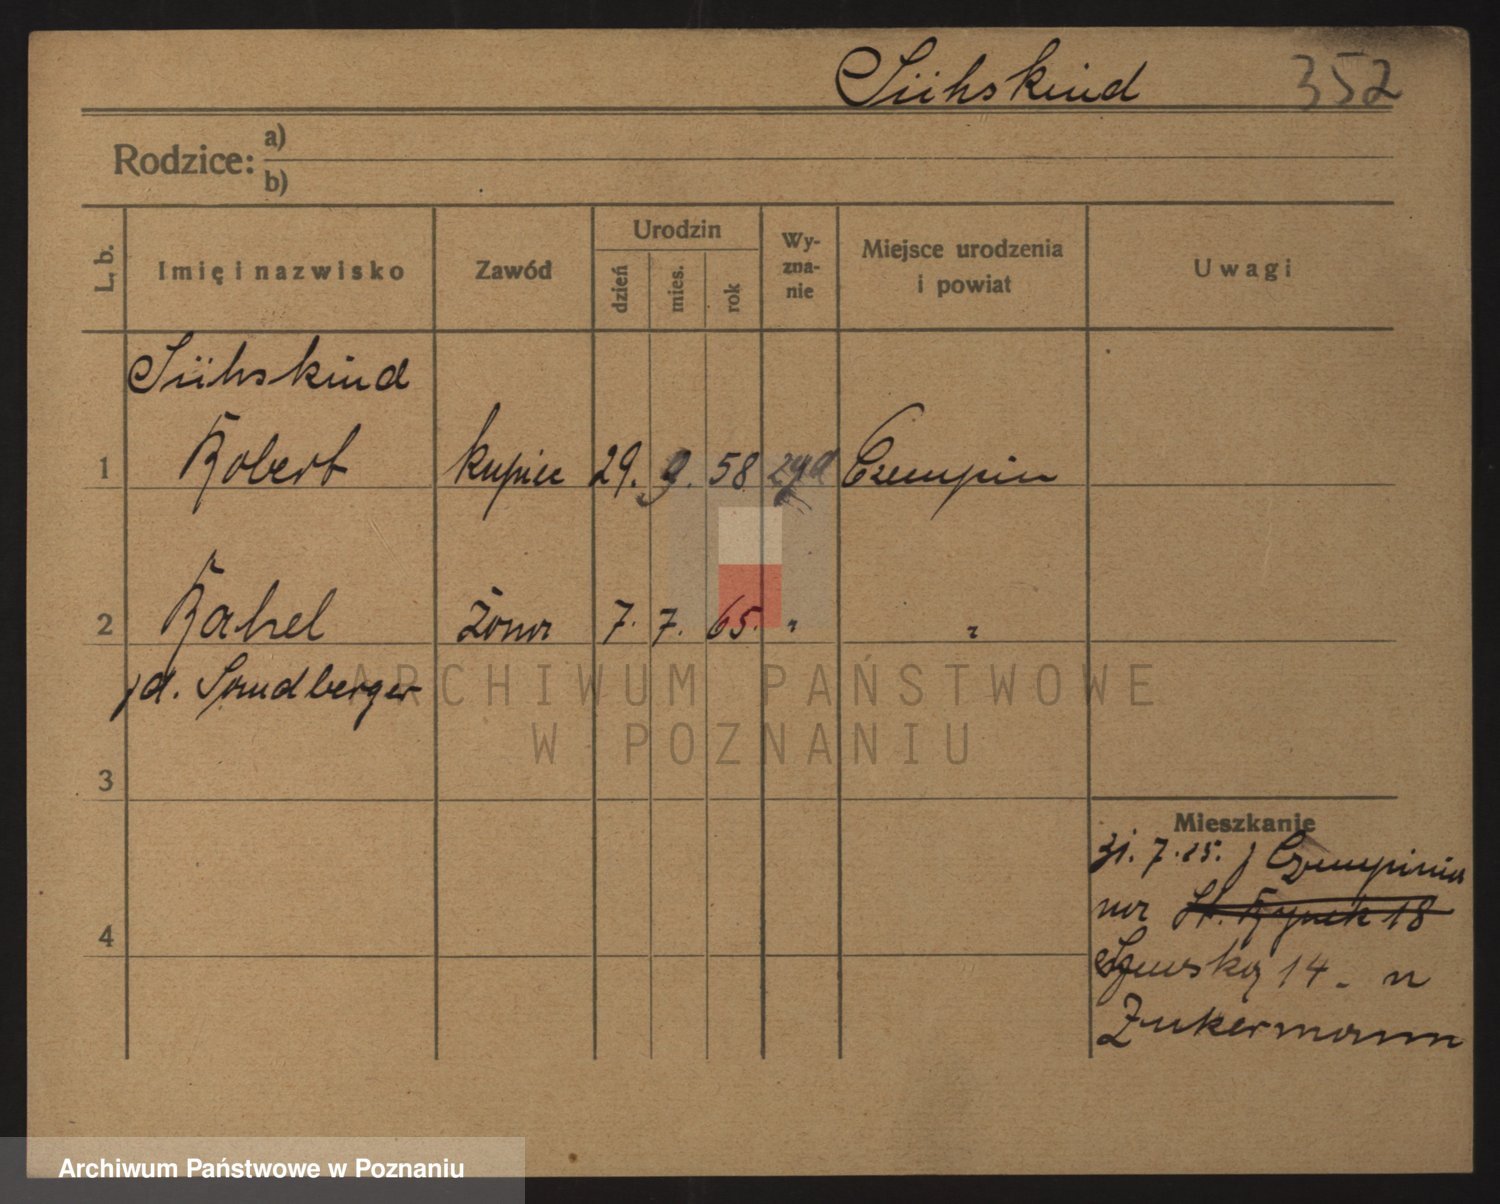 Sühskind 352
Rodzice: a)
b)
L. b. Imię i nazwisko Zawód Urodzin dzień mies. rok Wyznanie Miejsce urodzenia i powiat Uwagi
Sühskind
1 Robert kupiec 29. 9. 58 żyd Czempin
2 Rahel żona 7. 7. 65. " "
3
Mieszkanie
31. 7. 25. Czempinia
na St. Rynek 18
4
Szewską 14. u
Zukermann
ARCHIWUM PAŃSTWOWE
W POZNANIU
Archiwum Państwowe w Poznaniu